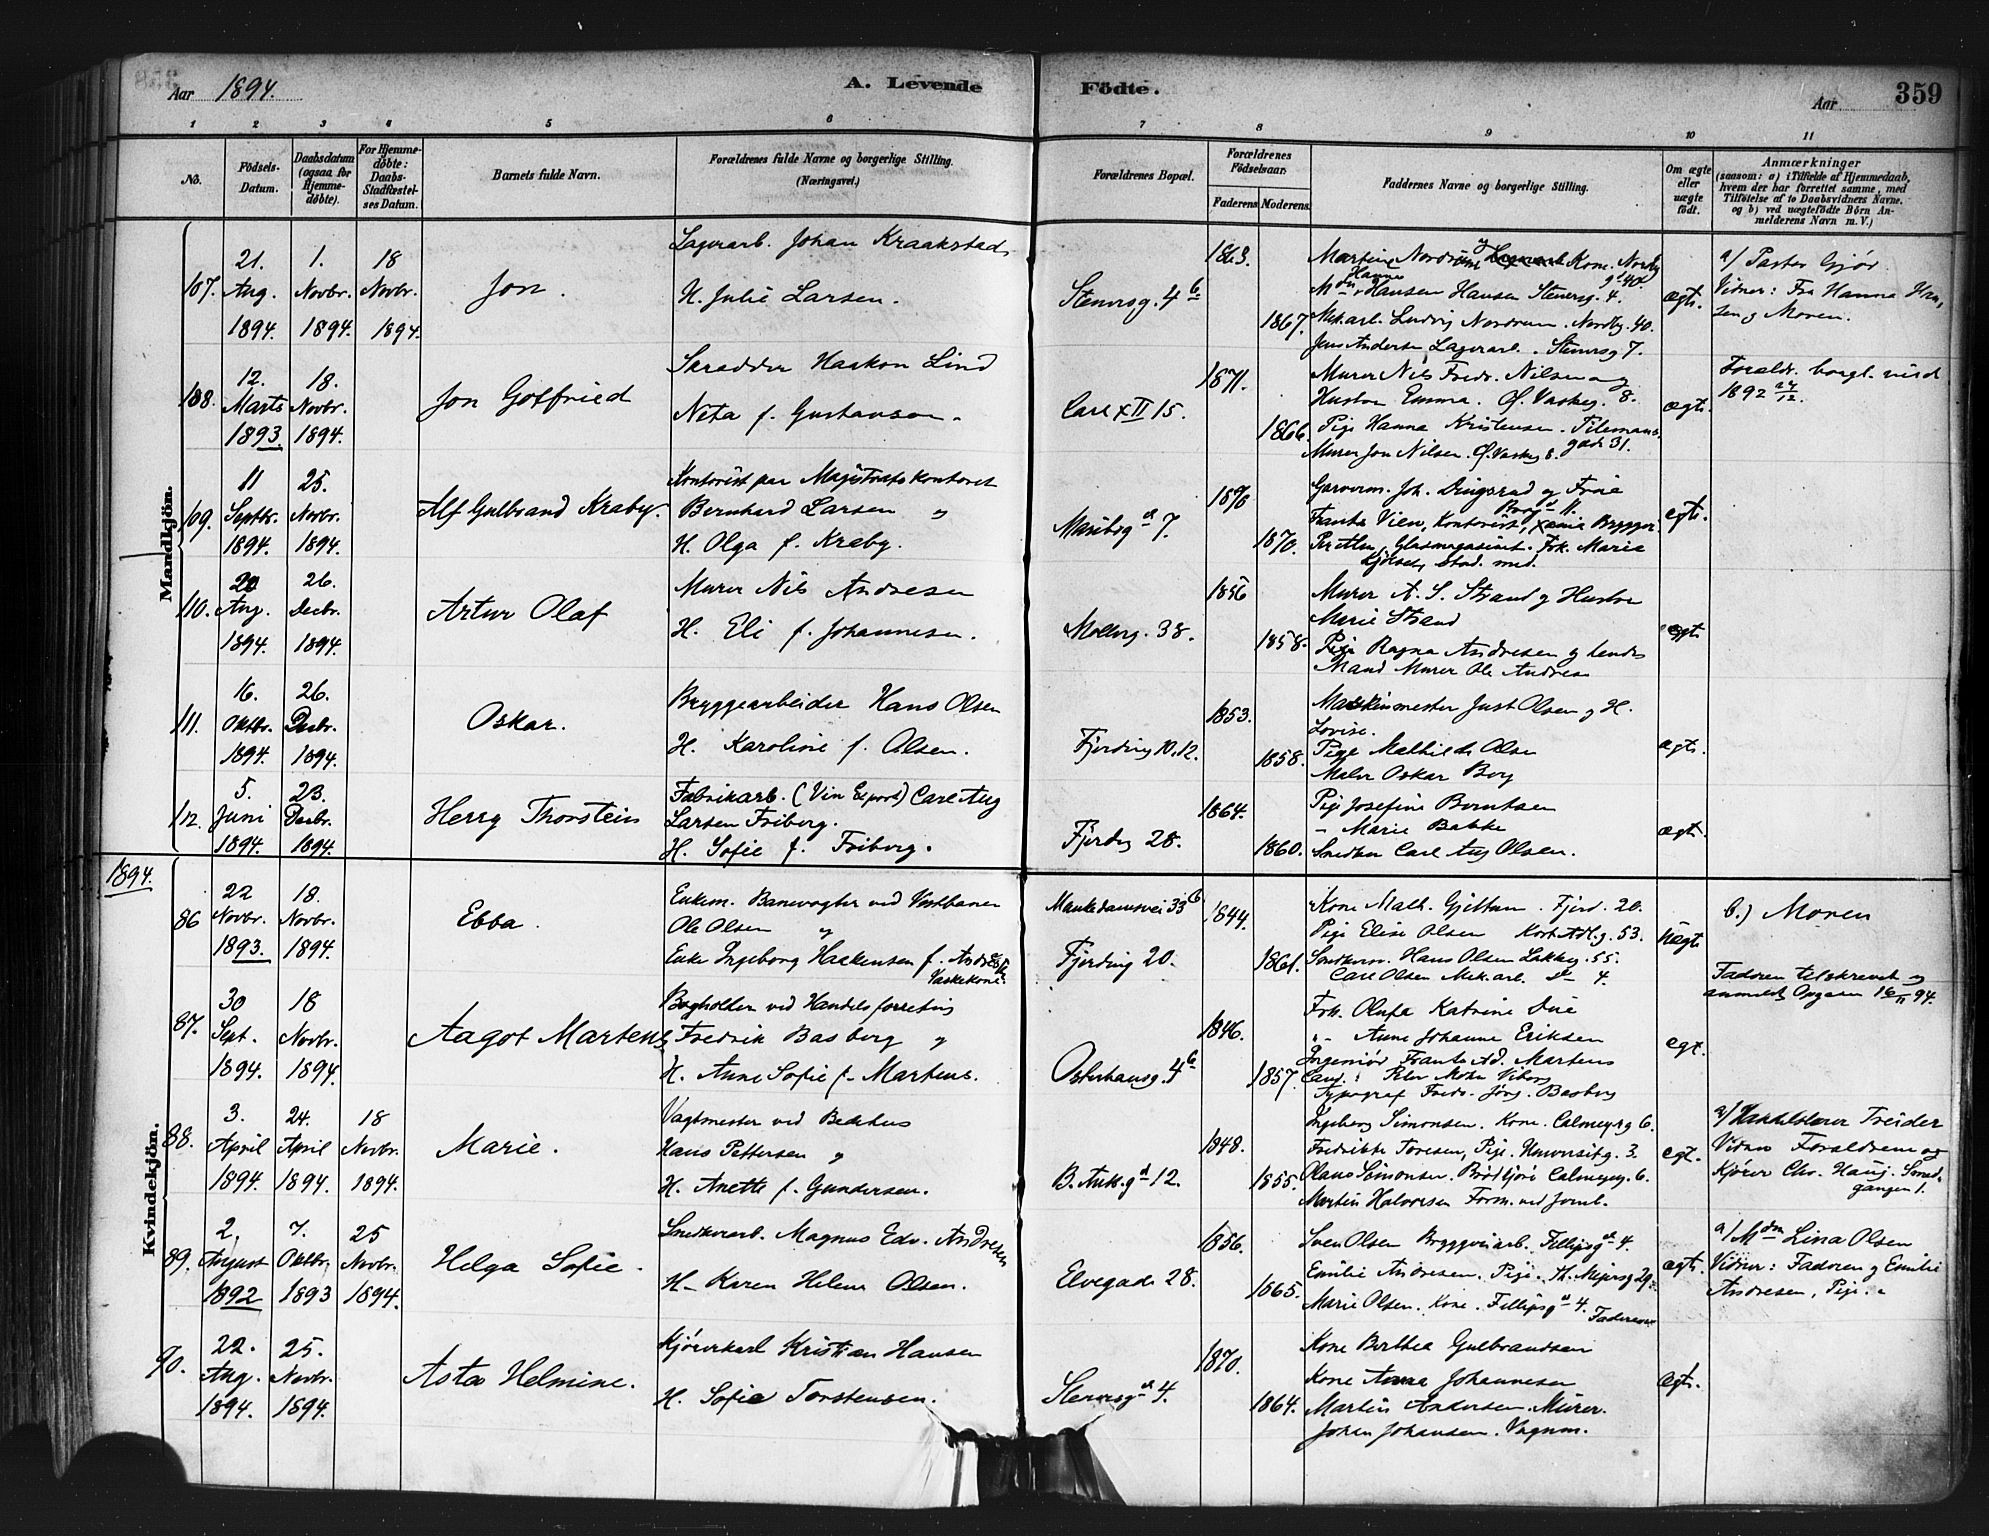 Aar 1894.
A. Levende Födte.
Aar
359
1 2 3 4 5 6 7 8 9 10 11
No.
Födsels-Datum.
Daabsdatum (ogsaa for Hjemme-döbte).
For Hjemme-döbte: Daabs-Stadfæstel-ses Datum.
Barnets fulde Navn.
Forældrenes fulde Navne og borgerlige Stilling. (Næringsvei.)
Forældrenes Bopæl.
Forældrenes Födselsaar.
Faderens. Moderens.
Faddernes Navne og borgerlige Stilling.
Om ægte eller uægte födt.
Anmærkninger
(saasom: a) i Tilfælde af Hjemmedaab,
hvem der har forrettet samme, med
Tilföielse af to Daabsvidners Navne.
og b) ved uægtefödte Börn An-
melderens Navn m. V.)
Mandkjön.
107.
21. Aug. 1894
1. Novbr. 1894.
18 Novbr. 1894.
Jon.
Lagerarb. Johan Kraakstad
H. Julie Larsen.
Stenersg. 4 b
1863.
1867.
Martine Nordrum Kone. Nordbg 40.
Hansen Stenersg. 4.
Mek.arb. Ludvig Nordrum. Nordbg. 40.
Jens Andersen, Lagerarb. Stenersg 7.
ægte.
a/ Pastor Gjør.
Vidner: Fru Hanna Han-
sen og Moren.
108.
12. Marts 1893.
18. Novbr. 1894.
Jon Gotfried
Haakon Lind
Neta f. Gustavson.
Carl XII 15.
1871.
1866.
Murer Nils Fredr. Nilsen og
Hustru Emma. Ø. Vaskeg. 8.
Pige Hanna Kristensen. Tilemans-
gade 31.
Murer Jon Nilsen. Ø. Vaskeg 8.
ægte.
Foreldr. borgl. viet
1892 27/12.
109.
11 Septbr. 1894.
25. Novbr. 1894.
Alf Gulbrand Kraby.
Kontorist paa Magistratskontoret
Bernhard Larsen og
H. Olga f. Kraby.
Maribog d 7.
1870
1870.
Garverm. Joh. Dingsrud og Frue
Frants Vien, Kontorist,
Glasmagasinet. Frk. Marie
Kjølseth, Stud. med.
ægte.
110.
Aug. 1894.
26. Decbr. 1894.
Artur Olaf
Murer Nils Andresen
H. Eli f. Johannesen.
Mollerg. 38.
1856
1858.
Murer A. S. Strand og Hustru
Marie Strand
Pige Ragna Andresen og hendes
Mand Murer Ole Andresen
ægte
111.
16. Oktbr. 1894.
26. Decbr. 1894.
Oskar.
Bryggearbeider Hans Olsen
H. Karoline f. Olsen.
Fjerding 10.12.
1853.
1858.
Maskinmester Just Olsen og H.
Lovise.
Pige Mathilde Olsen
Maler Oskar Berg
ægte.
112.
5. Juni 1894.
23. Decbr. 1894.
Herry Thorstein
Fabrikarb. (Vin Export) Carl Aug
Larsen Friberg.
H. Sofie f. Friberg.
Fjerdg 28.
1864.
1860.
Pige Josefine Berntsen
" Marie Bakke
Snedker Carl Aug Olsen.
ægte.
1894.
Kvindekjön.
86
22 Novbr. 1893.
18. Novbr. 1894.
Ebba.
Enkem. Banevogter ved Vestbanen
Ole Olsen og
Enke Ingeborg Haakensen f. Andresen
Vaskekone.
Munkedamsvei 33 b
Fjerding 20.
1844.
1861.
Kone Math. Gjettum. Fjerd. 20.
Pige Elise Olsen Kort Adl.g. 53.
Snedkerm. Hans Olsen Lakkeg. 55.
Carl Olsen Mek.arb. 4.
Uægte.
b.) Moren
Faderen tilskrevet og
anmeldt Opgaven 16/11 94.
87.
30 Sept. 1894.
18 Novbr. 1894.
Aagot Martens
Bogholder ved Handelsforretning
Fredrik Basberg og
H. Anne Sofie f. Martens.
Osterhausg. 4 b
1846.
1857.
Frk. Olufa Katrine Due
" Anne Johanne Eriksen
Ingeniør Frants Ad. Martens
Cand. Peter Mohn Viborg
Typograf Fredr. Jörg. Basberg
egte.
88.
3. April 1894.
24. April 1894.
18 Novbr. 1894.
Marie.
Vagtmester ved Bedehus
Hans Pettersen og
H. Anette f. Gundersen.
B. Ank.g d 12.
1848.
1855.
Ingeborg Simonsen. Kone. Calmeyrsg 6.
Fredrikke Toresen, Pige. 3.
Olaus Simonsen. Calmeyrg. 6.
Martin Halvorsen Form. ved Jernb.
egte.
a/ Handelslærer Treider
Vidner Forældrene og
Kjører Chr. Haug. Smed-
gangen 1.
89.
2. August 1892
7. Oktbr. 1893
25 Novbr. 1894.
Helga Sofie.
Snedkerarb. Magnus Edv. Andresen
H. Karen Helene Olsen.
Elvegade 28.
1856.
1865.
Sven Olsen Bryggeriarb. Fillipsg d 4.
Emilie Andresen. Pige. Th. Meyersg 29.
Marie Olsen. Kone. Fillipsg d 4. Faderen
ægte.
a/ Mdm Lina Olsen
Vidner: Faderen og Emilie
Andresen, Pige.
90.
22. Aug. 1894.
25. Novbr. 1894.
Asta Helmine.
Kjørekarl Kristian Hansen
H. Sofie Torstensen.
Stenersg d 4.
1870.
1864.
Kone Berthea Gulbrandsen
Kone Anna Johannesen
Martin Andersen. Murer.
Johan Johansen. Vognm.
ægte.